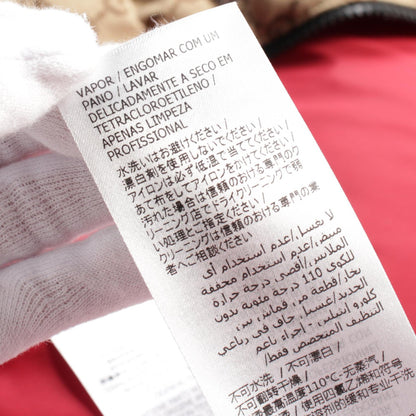 VAPOR / ENGOMAR COM UM
PANO / LAVAR
DELICADAMENTE A SECO EM
TETRACLOROETILENO /
APENAS LIMPEZA
PROFISSIONAL
水洗いはお避けください/
漂白剤を使用しないでください/
アイロンは必ず低温で当てください/
あて布をしてアイロンをかけてください/
汚れた場合は信頼のおける専門のク
リーニング店でドライクリーニング弱
い処理とご指定ください/
クリーニングは信頼のおける専門の業
者へご相談ください
لا يغسل/عدم استخدام أي
مبيض/عدم استخدام مجففة
الملابس/أقصى درجة حرارة
للكوي 110 درجة مئوية بدون
بخار/
كلورو إيثيلين/
التنظيف المتخصص فقط/
不可水洗/不可漂白/
不可翻转干燥/
最高温度110℃-无蒸汽/
使用四氯乙烯和符号
的缓和专业干洗